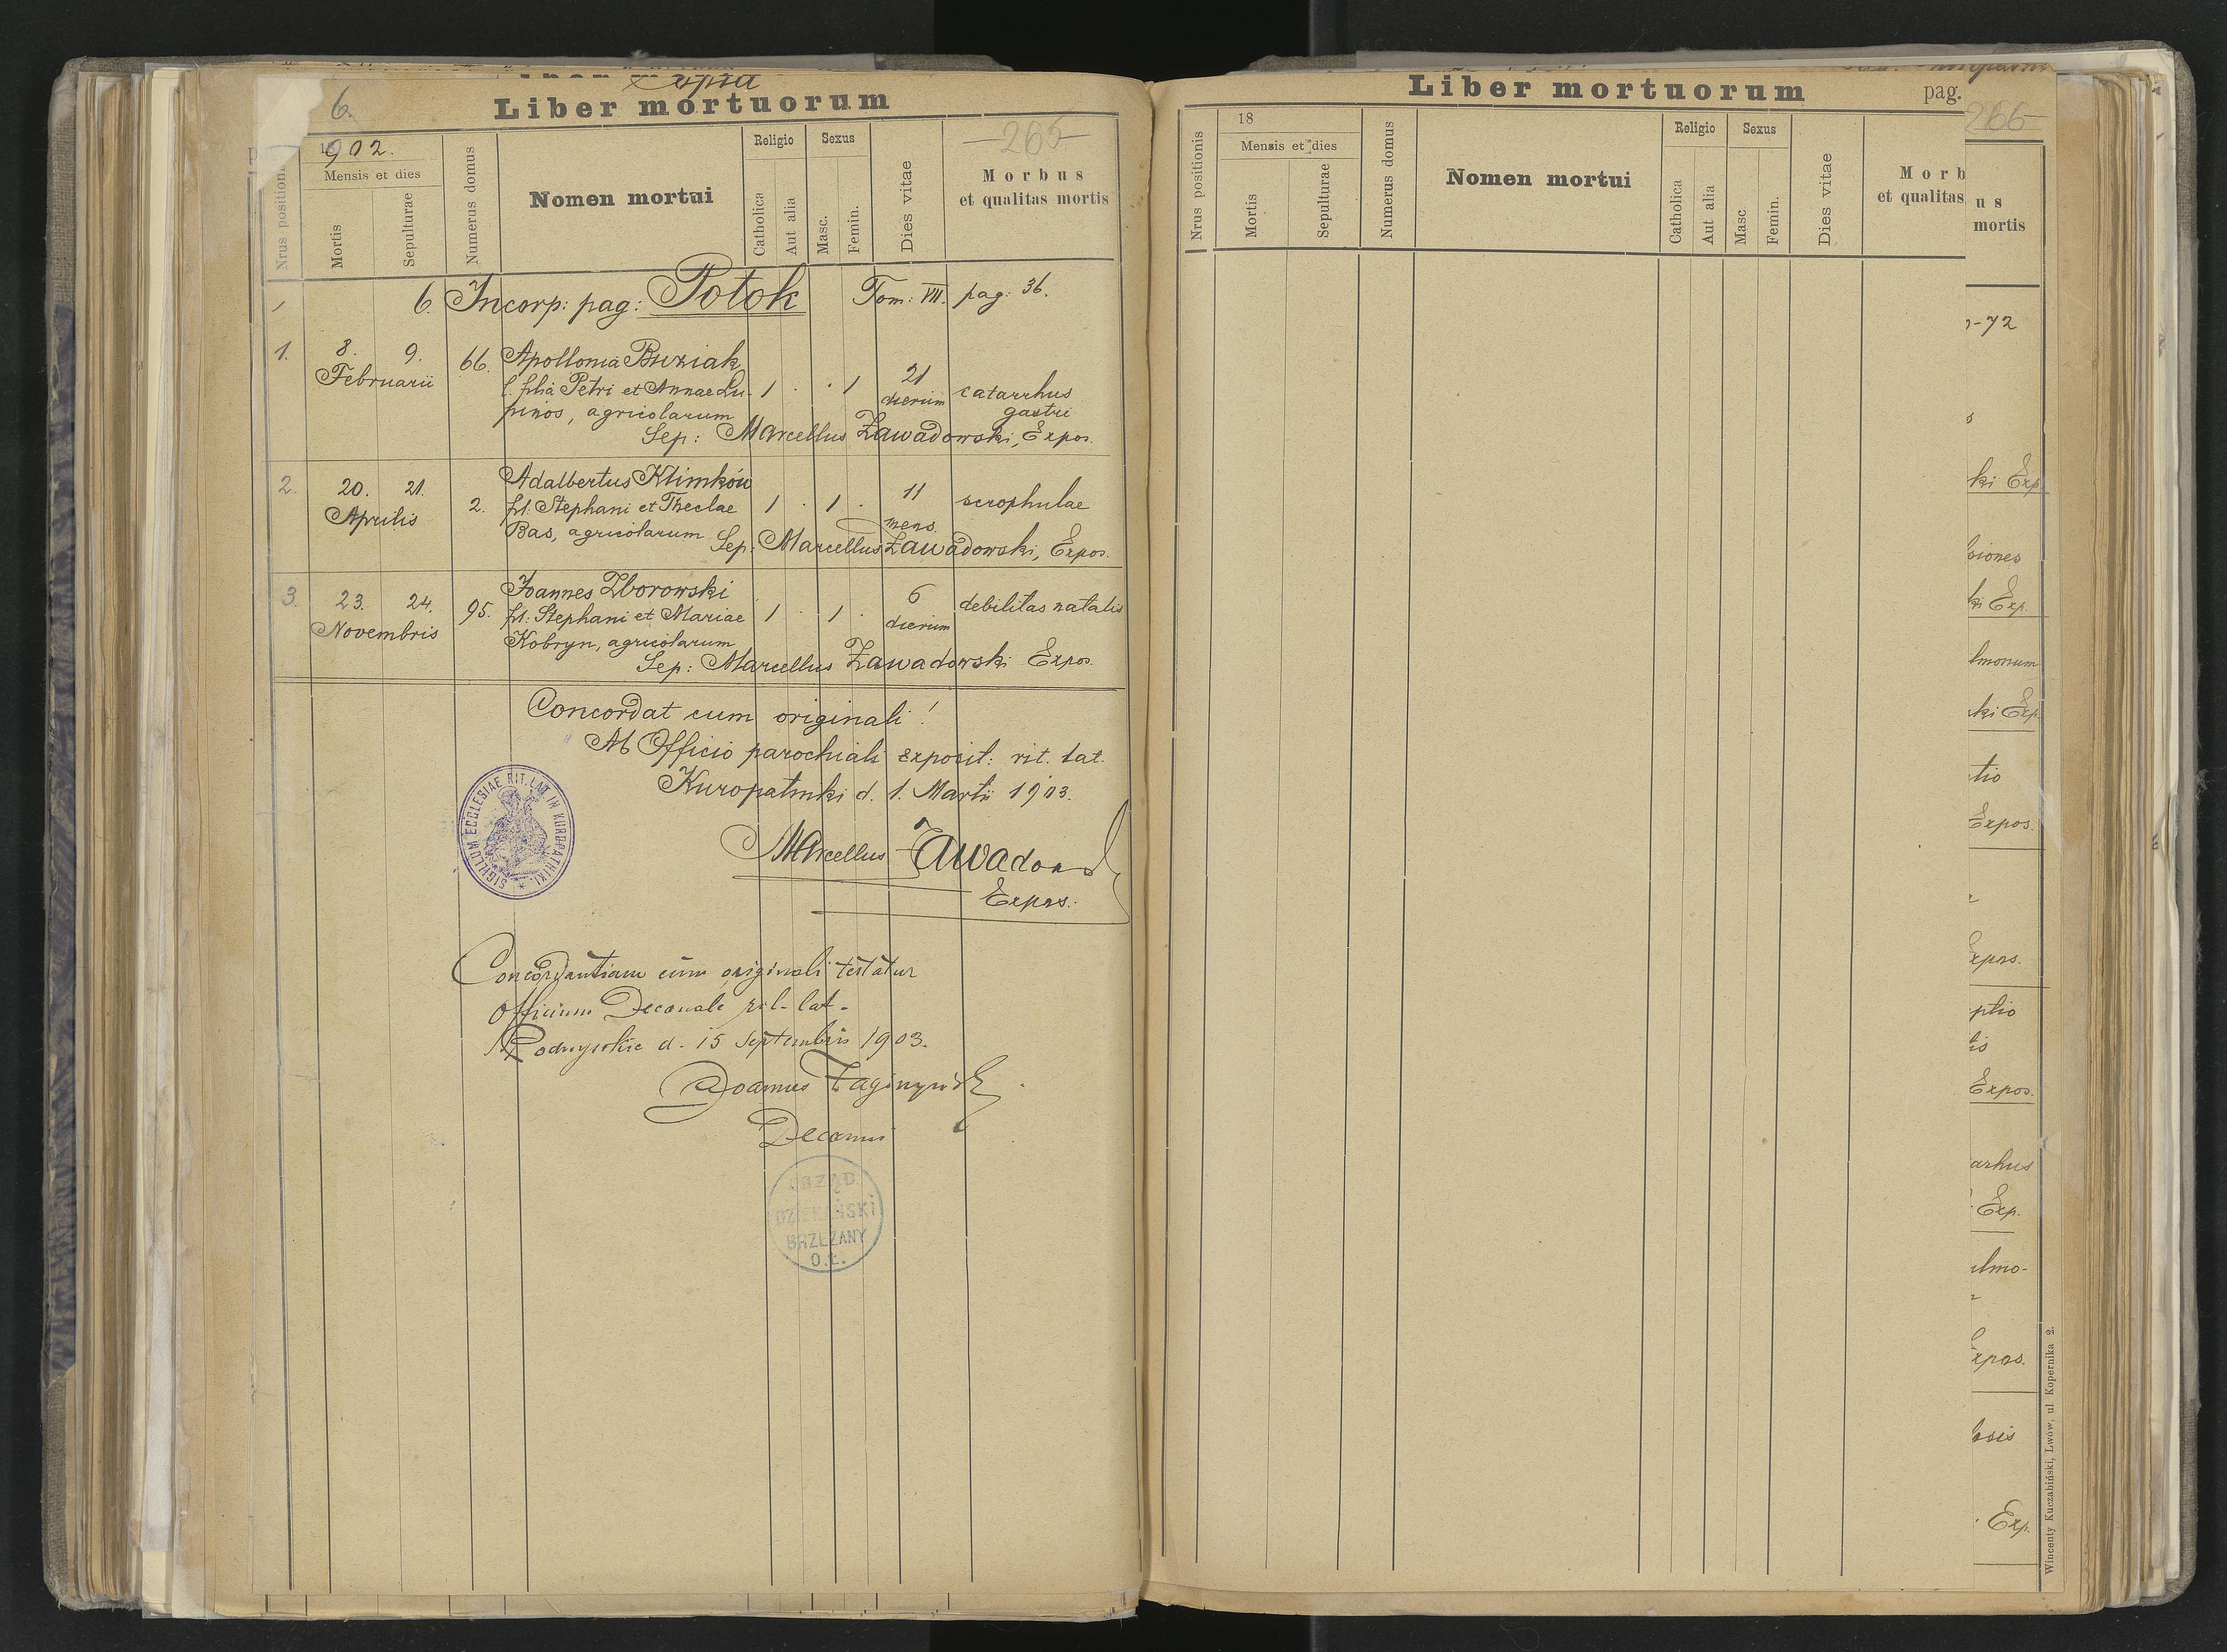 Copia
6.
Liber mortuorum
265
1902.
Mensis et dies
Nrus position
Mortis
Sepulturae
Numerus domus
Nomen mortui
Religio
Catholica
Aut alia
Sexus
Masc.
Femin.
Dies vitae
Morbus
et qualitas mortis
6. Incorp: pag: Potok Tom: VII. pag: 36.
1. 8. 9. 66. Apollonia Buziak
Februarii l. filia Petri et Annae Lu- 1 . . 1 21 dierum catarrhus
pinos, agricolarum gastri
Sep: Marcellus Zawadowski, Expos.
2. 20. 21. Adalbertus Klimków
Aprilis 2. fil: Stephani et Theclae 1 . 1 . 11 mens. scrophulae
Bas, agricolarum Sep: Marcellus Zawadowski, Expos.
3. 23. 24. Joannes Zborowski
Novembris 95. fil: Stephani et Mariae 1 . 1 . 6 dierum debilitas natalis
Kobryn, agricolarum
Sep: Marcellus Zawadowski Expos.
Concordat cum originali!
Ab Officio parochiali exposit: rit. lat.
Kuropatniki d. 1. Martii 1903.
SIGILLUM ECCLESIAE RIT. LAT. IN KUROPATNIKI.
Marcellus Zawadows
Expos.
Concordantiam cum originali testatur
Officium Decanale rit. lat.
d. 15 Septembris 1903.
Joannes
Decanus
URZĄD
DZIEKAŃSKI
BRZEŻANY
O.Ł.
Liber mortuorum
pag.
266
18
Mensis et dies
Nrus positionis
Mortis
Sepulturae
Numerus domus
Nomen mortui
Religio
Catholica
Aut alia
Sexus
Masc
Femin.
Dies vitae
Morb
et qualitas
us
mortis
-72
ki Exp.
siones
ki Exp.
lmonum
ki Exp.
tio
Expos.
xpos.
ptio
tis
Expos.
arhus
Exp.
ulmo-
xpos.
osis
Exp.
Wincenty Kuczabiński, Lwów, ul Kopernika 2.